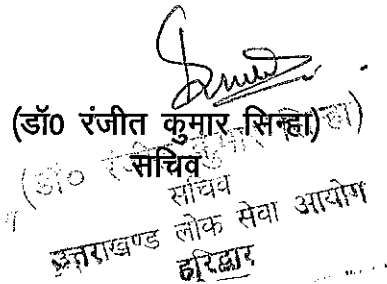 (डॉ0 रंजीत कुमार सिन्हा)
सचिव
(डॉ0 रंजीत कुमार सिन्हा)
सचिव
उत्तराखण्ड लोक सेवा आयोग
हरिद्वार